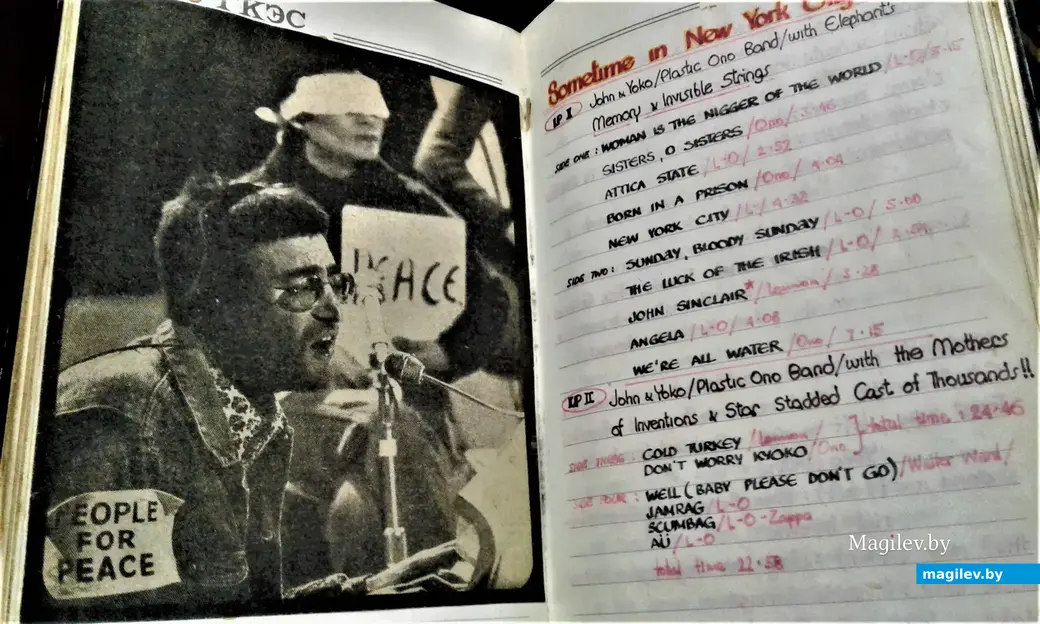 ГКЭС
PEACE
EOPLE
FOR
PEACE
Sometime in New York City
LP I John & Yoko/Plastic Ono Band/with Elephant's
Memory & Invisible Strings
SIDE ONE: WOMAN IS THE NIGGER OF THE WORLD /L-O/ 5·15
SISTERS, O SISTERS /Ono/ 3·46
ATTICA STATE /L-O/ 2·52
BORN IN A PRISON /Ono/ 4·04
NEW YORK CITY /L/ 4·32
SIDE TWO: SUNDAY, BLOODY SUNDAY /L-O/ 5·00
THE LUCK OF THE IRISH /L-O/
JOHN SINCLAIR* /Lennon/ 3·28
ANGELA /L-O/ 4·08
WE'RE ALL WATER /Ono/ 7·15
LP II John & Yoko/Plastic Ono Band/with the Mothers
of Inventions & Star Stadded Cast of Thousands!!
SIDE THREE: COLD TURKEY /Lennon/
DON'T WORRY KYOKO /Ono } total time: 24·46
SIDE FOUR: WELL (BABY PLEASE DON'T GO) /Walter Ward/
JAMRAG /L-O
SCUMBAG /L-O-Zappa
AÜ /L-O
total time 22·58
Magilev.by
magilev.by